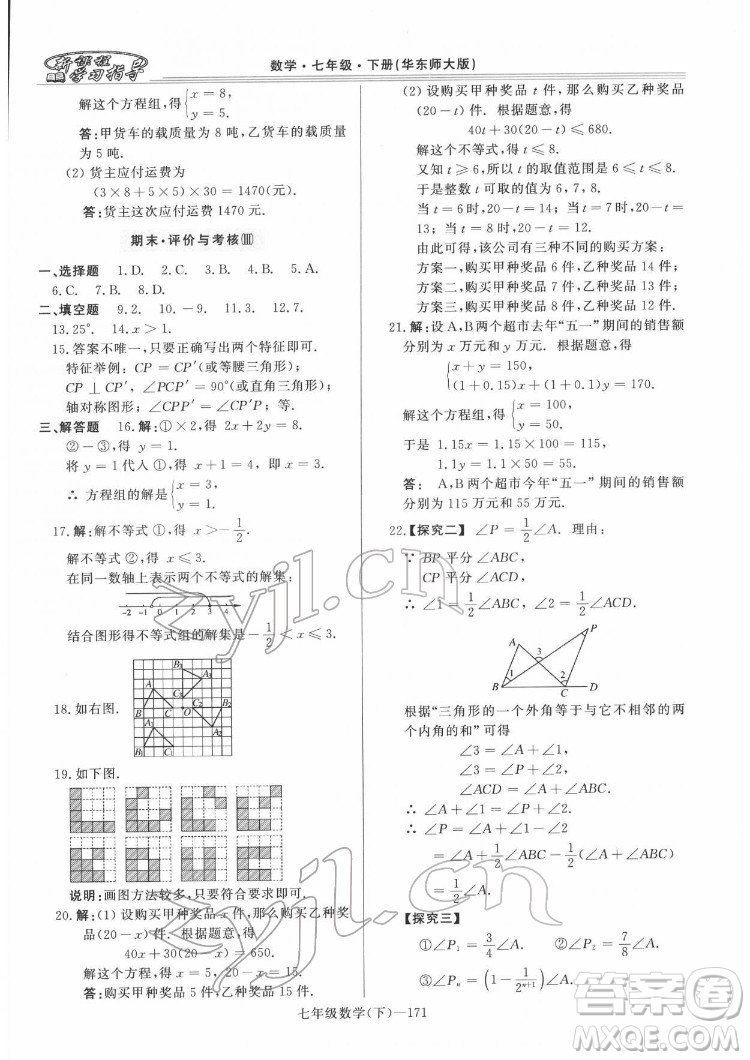 新课程
学习指导
数学·七年级·下册(华东师大版)
解这个方程组,得{x=8, y=5.
答:甲货车的载质量为 8 吨,乙货车的载质量
为 5 吨.
(2) 货主应付运费为
(3×8+5×5)×30=1470(元).
答:货主这次应付运费 1470 元.
期末·评价与考核(Ⅲ)
一、选择题 1.D. 2.C. 3.D. 4.B. 5.A.
6.C. 7.B. 8.D.
二、填空题 9.2. 10.-9. 11.3. 12.7.
13.25°. 14.x>1.
15.答案不唯一,只要正确写出两个特征即可.
特征举例:CP=CP′(或等腰三角形),
CP⊥CP′,∠PCP′=90°(或直角三角形),
轴对称图形;∠CPP′=∠CP′P等.
三、解答题 16.解:①×2,得 2x+2y=8.
②-③,得 y=1.
将 y=1代入 ①,得 x+1=4.
∴ 方程组的解是{x=3, y=1.
17.解:解不等式 ①,得 x>-1/2.
解不等式 ②,得 x≤3.
在同一数轴上表示两个不等式的解集:
-2 -1 0 1 2 3 4
结合图形得不等式组的解集是-1/2<x≤3.
18.如右图.
19.如下图.
说明:画图方法较多,只要符合要求即可.
20.解:(1)设购买甲种奖品x件,那么购买乙种奖
品(20-x)件.根据题意,得
40x+30(20-x)=650.
解这个方程,得 x=5, 20-x=15.
答:购买甲种奖品 5 件,乙种奖品 15 件.
(2) 设购买甲种奖品 t 件,那么购买乙种奖品
(20-t)件. 根据题意,得
40t+30(20-t)≤680.
解这个不等式,得 t≤8.
又知 t≥6,所以 t 的取值范围是 6≤t≤8.
于是整数 t 的值可取为 6,7,8.
当 t=6时,20-t=14;当 t=7时,20-t=13;
当 t=8时,20-t=12.
由此可得,该公司有三种不同的购买方案:
方案一,购买甲种奖品 6 件,乙种奖品 14 件;
方案二,购买甲种奖品 7 件,乙种奖品 13 件;
方案三,购买甲种奖品 8 件,乙种奖品 12 件.
21.解:设 A,B两个超市去年“五一”期间的销售额
分别为 x 万元和 y 万元. 根据题意,得
{x+y=150, (1+0.15)x+(1+0.1)y=170.
解这个方程组,得{x=100, y=50.
于是,1.15x=1.15×100=115,
1.1y=1.1×50=55.
答: A,B两个超市今年“五一”期间的销售额
分别为 115 万元和 55 万元.
22.【探究二】 ∠P=1/2∠A. 理由:
∵ BP 平分 ∠ABC,
CP 平分 ∠ACD,
∴ ∠1=1/2∠ABC,∠2=1/2∠ACD.
A P 3 1 2 B C D
根据“三角形的一个外角等于与它不相邻的两
个内角的和”可得
∠3=∠1+∠A,
∠3=∠P+∠2,
∠ACD=∠A+∠ABC.
∴ ∠1+∠A=∠P+∠2.
∴ ∠P=∠A+∠1-∠2
=∠A+1/2∠ABC-1/2∠ACD
=1/2∠A.
【探究三】
①∠P₁=3/4∠A. ②∠P₂=7/8∠A.
③∠Pₙ=(1-1/2ⁿ⁺¹)∠A.
七年级数学(下)—171
zyjl.cn
zyjl.cn
答案圈
MXQE.COM